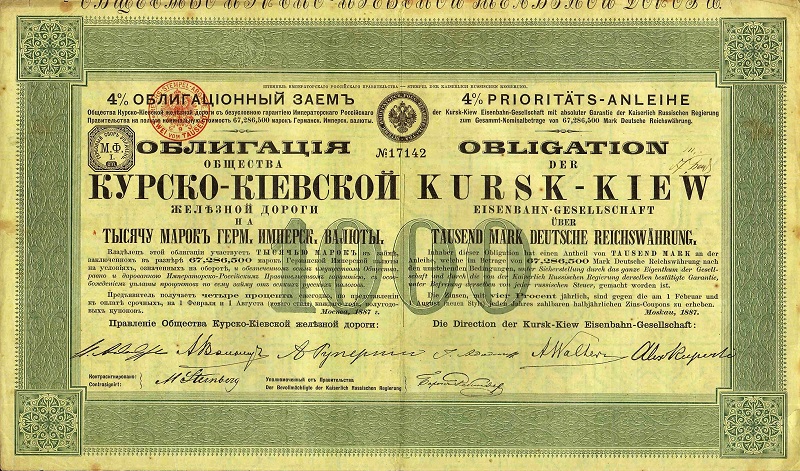 ОБЩЕСТВО КУРСКО-КІЕВСКОЙ ЖЕЛѢЗНОЙ ДОРОГИ.
ШТЕМПЕЛЬ ИМПЕРАТОРСКАГО РОССІЙСКАГО ПРАВИТЕЛЬСТВА — STEMPEL DER KAISERLICH RUSSISCHEN REGIERUNG.
4% ОБЛИГАЦІОННЫЙ ЗАЕМЪ
Общества Курско-Кіевской желѣзной дороги съ безусловною гарантіею Императорскаго Россійскаго
Правительства на полную нарицательную стоимость 67,286,500 марокъ Германск. Имперск. валюты.
М.Ф.
I.
ОБЛИГАЦІЯ
ОБЩЕСТВА
КУРСКО-КІЕВСКОЙ
ЖЕЛѢЗНОЙ ДОРОГИ
НА
ТЫСЯЧУ МАРОКЪ ГЕРМ. ИМПЕРСК. ВАЛЮТЫ.
Владѣлецъ этой облигаціи участвуетъ ТЫСЯЧЬЮ МАРОКЪ въ займѣ,
заключенномъ въ размѣрѣ 67,286,500 марокъ Германской Имперской валюты
на условіяхъ, означенныхъ на оборотѣ,
Предъявитель получаетъ четыре процента ежегодно,
въ 1 Февраля и 1 Августа
купоновъ. Москва, 1887 г.
Правленіе Общества Курско-Кіевской желѣзной дороги:
№17142
1000
4% PRIORITÄTS-ANLEIHE
der Kursk-Kiew Eisenbahn-Gesellschaft mit absoluter Garantie der Kaiserlich Russischen Regierung
zum Gesammt-Nominalbetrage von 67,286,500 Mark Deutsche Reichswährung.
OBLIGATION
DER
KURSK-KIEW
EISENBAHN-GESELLSCHAFT
ÜBER
TAUSEND MARK DEUTSCHE REICHSWÄHRUNG.
Inhaber dieser Obligation hat einen Antheil von TAUSEND MARK an der
Anleihe, welche im Betrage von 67,286,500 Mark Deutsche Reichswährung nach
den umstehenden Bedingungen, unter Sicherstellung durch das ganze Eigenthum der Gesell-
schaft und durch die von der Kaiserlich Russischen Regierung derselben bestätigte Garantie,
unter Befreiung derselben von jeder russischen Steuer, gemacht worden ist.
Die Zinsen, vier Procent jährlich, sind gegen die am 1 Februar und
1 August neuen Styls jeden Jahres zahlbaren halbjährlichen Zins-Coupons zu erheben.
Moskau, 1887.
Die Direction der Kursk-Kiew Eisenbahn-Gesellschaft:
Контрасигнировалъ:
Contrasignirt:
M Steinberg
Уполномоченный отъ Правительства
Der Bevollmächtigte der Kaiserlich Russischen Regierung